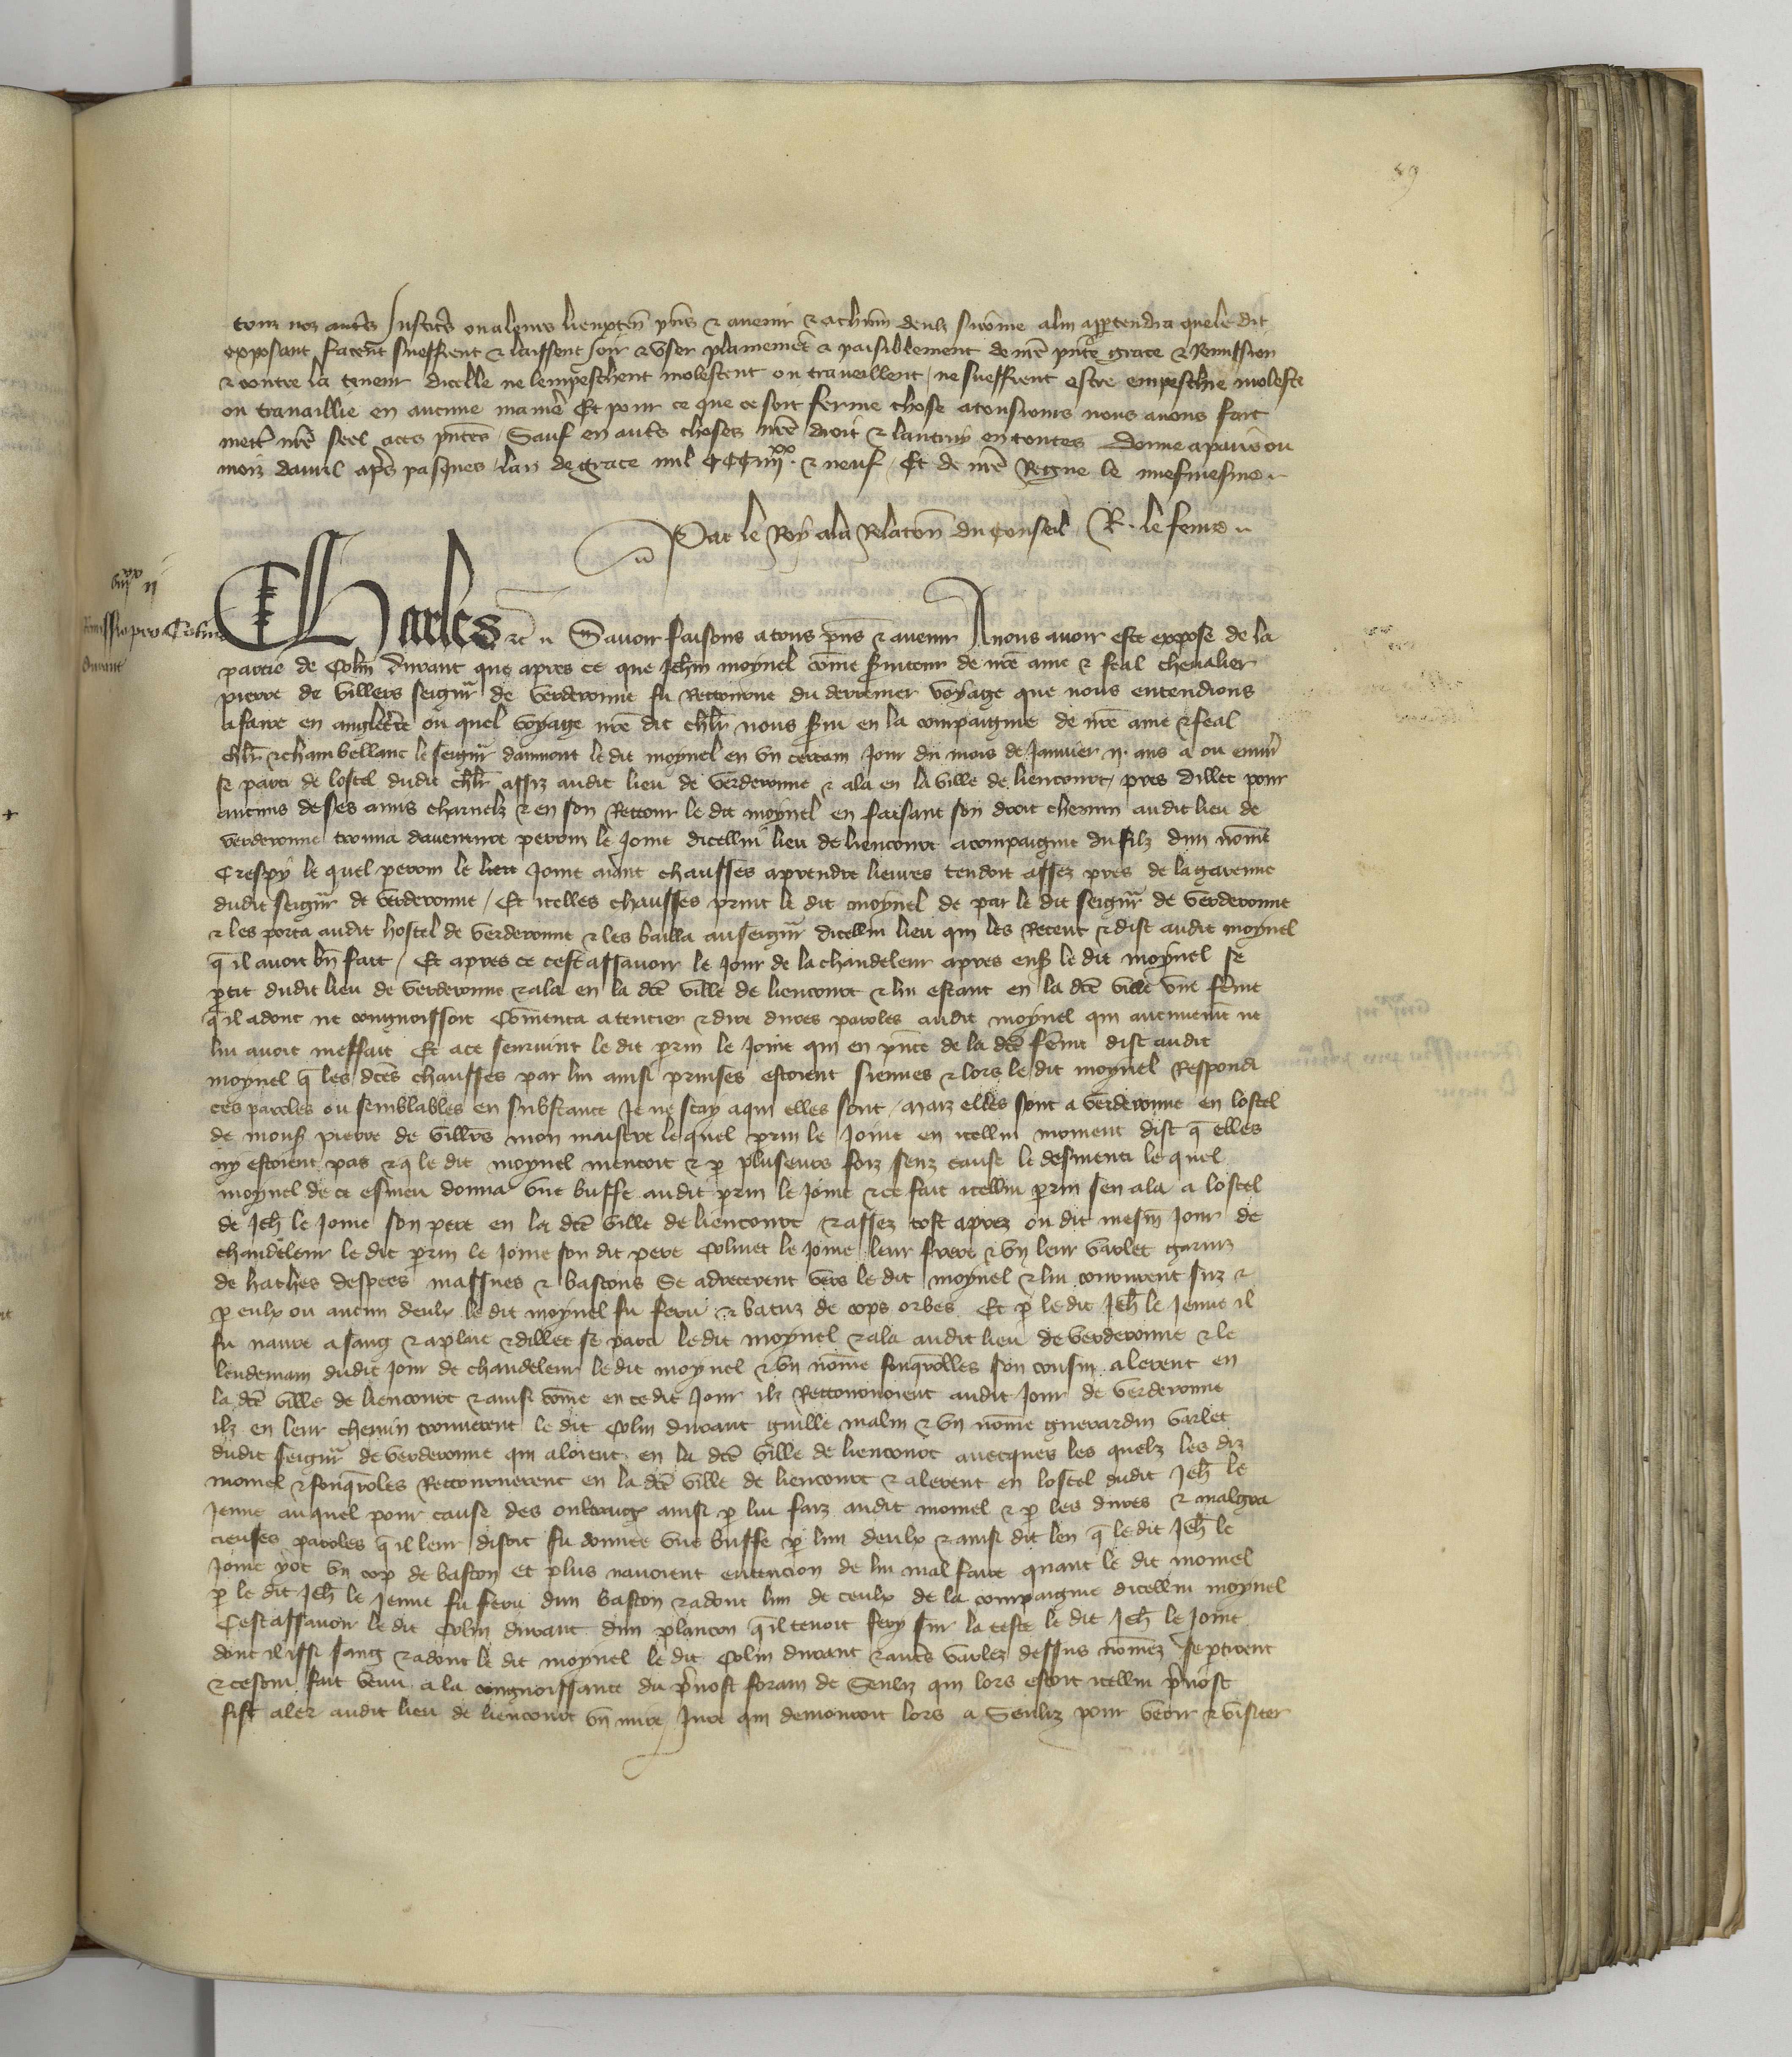 59
tous noz autres Justiciers ou a leurs lieuxten̄ pn̄s & avenir & a chūn deulz si cōme a lui appartendra que le dit
exposant facent sueffrent & laissent joir & user plainement & paisiblement de nr̄e pn̄te grace & Remission
& contre la teneur dicelle ne lempeschent molestent ou traveillent / ne sueffrent estre empeschie moleste
ou travaillie en aucune maniere Et pour ce que ce soit ferme chose a tousiours nous avons fait
mettr̄ nr̄e seel a ces pn̄tes / Sauf en autrēs choses nr̄e droit & lautruy en toutes Donne a paris ou
mois davril aprēs pasques lan de grace mil CCC iiijxx. & neuf / Et de nr̄e Regne le nuefviesme
Par le Roy a la Relacōn du Conseil R. le fevre
iiijxx ij
Remissio pro Colin
durant
Charles &c Savoir faisons a tous pn̄s & avenir A nous avoir este expose de la
partie de Colin durant que apres ce que Jehan moynel cōme sviteur de nr̄e ame & feal chevalier
pierre de villers seigneur de verderonne fu Retourne du derrenier voyage que nous entendions
a faire en angletr̄re ou quel voyage nr̄e dit chlr̄ nous servi en la compaignie de nr̄e ame & feal
chlr̄ & chambellanc le seigneur daumont le dit moynel en un certain Jour du mois de Janvier ij. ans a ou environ
se parti de lostel dudit chlr̄ assiz audit lieu de verderonne & ala en la ville de liencourt / pres dillec pour
aucuns de ses amis charnelz & en son Retour le dit moynel en faisant son droit chemin audit lieu de
verderonne trouva daventure perrin le Joine dicellui lieu de liencourt acompaignie du filz dun nōme
Crespy le quel perrin le Joine aiant chausses a prendre lievres tendoit assez pres de la garenne
dudit seigneur de verderonne / Et icelles chausses print le dit moynel de par le dit seigneur de verderonne
& les porta audit hostel de verderonne & les bailla au seigneur dicellui lieu qui les Receut & dist audit moynel
q̄ il avoit bn̄ fait / Et apres ce cest assavoir le Jour de la chandeleur apres ens̄ le dit moynel se
ptit dudit lieu de verderonne & ala en la dcē ville de liencourt & lui estant en la dcē ville une fēme
q̄ il adonc ne congnoissoit Cōmenca a tencier & dire dures paroles audit moynel qui aucunemēt ne
lui avoit meffait Et a ce seurvint le dit prin le Joine qui en pn̄ce de la dcē fēme dist audit
moynel q̄ les dcēs chausses par lui ainsi prinses estoient siennes & lors le dit moynel Respondi
ces paroles ou semblables en substance Je ne scay a qui elles sont / maiz elles sont a verderonne en lostel
de mons̄ pierre de villers mon maistre le quel prin le Joine en icellui moment dist q̄ elles
ny estoient pas & q̄ le dit moynel mentoit & p̄ pluseurs foiz senz cause le desmenti le quel
moynel de ce esmeu donna une buffe audit prin le Joine & ce fait icellui prin sen ala a lostel
de Jeh̄ le Joine son pere en la dcē ville de liencourt & assez tost aprez ou dit mesm̄ Jour de
chandeleur le dit prin le Joine son dit pere Colinet le Joine leur frere & un leur varlet garniz
de haches despees massues & bastons Se adrecerent vers le dit moynel & lui coururent suz &
p̄ eulx ou aucun deulx le dit moynel fu feru & batuz de cops orbes Et p̄ le dit Jeh̄ le Jenne il
fu navre a sang & a plaie & dillec se parti le dit moynel & ala audit lieu de verderonne & le
lendemain dudit Jour de chandeleur le dit moynel & un nōme fouqrolles son cousin alerent en
la dcē ville de liencourt & ainsi cōme en ce dit Jour ilz Retournoient audit Jour de verderonne
ilz en leur chemin trouverent le dit Colin durant guille malin & un nōme guerardin varlet
dudit seigneur de verderonne qui aloient en la dcē ville de liencourt avecques les quelz les diz
moinel & fouqroles Retournerent en la dcē ville de liencourt & alerent en lostel dudit Jeh̄ le
Jenne auquel pour cause des oultraiges ainsi p̄ lui faiz audit moinel & p̄ les dures & malgra
cieuses paroles q̄ il leur disoit fu donnee une buffe p̄ lun deulx & ainsi dit len q̄ le dit Jeh̄ le
Joine y ot un cop de baston et plus navoient entencion de lui mal faire quant le dit moinel
p̄ le dit Jeh̄ le Jenne fu feru dun baston & adonc lun de ceulx de la compaignie dicellui moynel
Cest assavoir le dit Colin durant dun plancon q̄ il tenoit fery sur la teste le dit Jeh̄ le Joine
dont il issi sang & adonc le dit moynel le dit Colin durant & autrēs varlez dessus nōmez se ptirent
& cestui fait venu a la congnoissance du prevost forain de Senliz qui lors estoit icellui prevost
fist aler audit lieu de liencourt un mire Jure qui demouroit lors a Senliz pour veoir & visiter